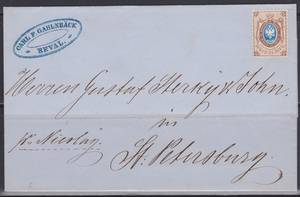 CARL F. GAHLNBÄCK
REVAL.
Herren Gustaf Sterky & Sohn.
in
St. Petersburg.
pr Nicolay